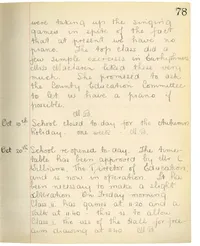 78
were taking up the singing
games in spite of the fact
that at present we have no
piano. The top class did a
few simple exercises in
this. The children liked them very
much. She promised to ask
the County Education Committee
to let us have a piano if
possible.
Oct 10th School closed to-day for the Autumn
holiday. one week.
Oct 20th School re-opened to-day. The time-
table has been approved by Mr
Williams, The Director of Education
and is now in operation. It has
been necessary to make a slight
alteration. On Friday morning
Class 2 has games at 11.20 and a
talk at 11.40. This is to allow
Class 1 the use of the Hall for free
arm drawing at